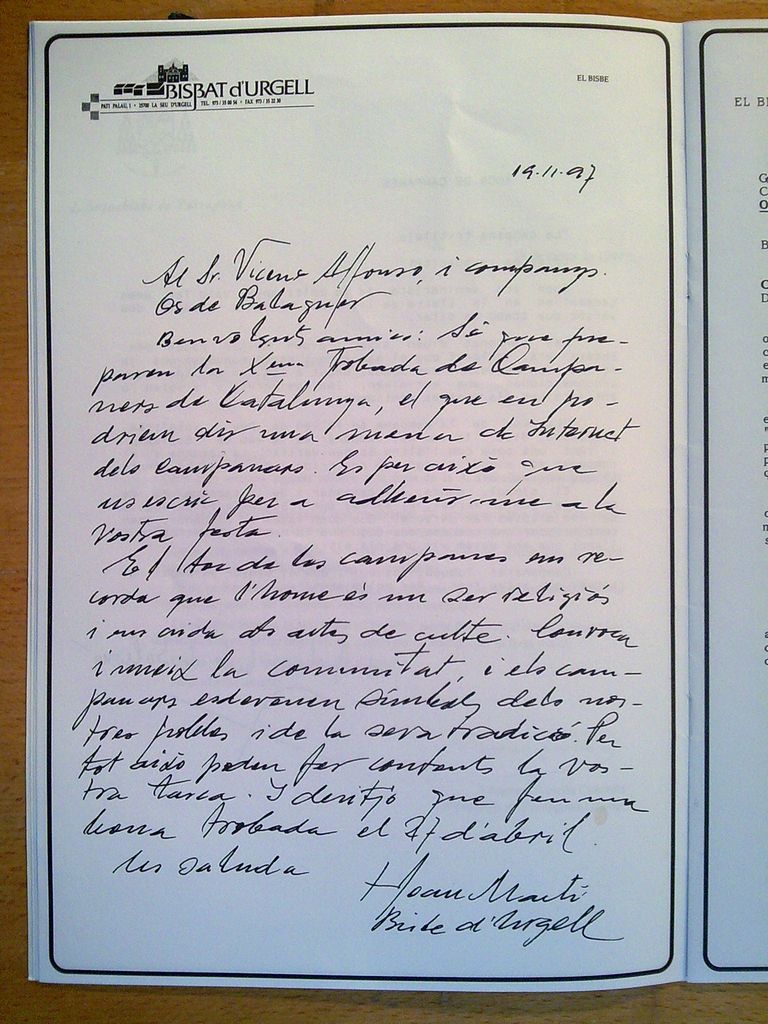 BISBAT d'URGELL
PATI PALAU, 1 • 25700 LA SEU D'URGELL TEL. 973 / 35 00 54 • FAX 973 / 35 22 30
EL BISBE
19.11.97
Al Sr. Vicens Alfonso i companys.
Os de Balaguer
Benvolguts amics: Sé que pre-
paren la Xena Trobada de Campa-
ners de Catalunya, el que en po-
driem dir una mena de Internet
dels campanars. Es per això que
us escric per a adherir-me a la
vostra festa.
El toc de les campanes ens re-
corda que l'home és un ser religiós
i ens crida als actes de culte. Convoca
i uneix la comunitat, i els cam-
panars esdevenen símbols dels nos-
tres pobles i de la seva tradició. Per
tot això poden fer contents la vos-
tra tasca. I desitjo que fen una
bona trobada el 27 d'abril.
Us saluda
+Joan Martí
Bisbe d'Urgell
EL BI